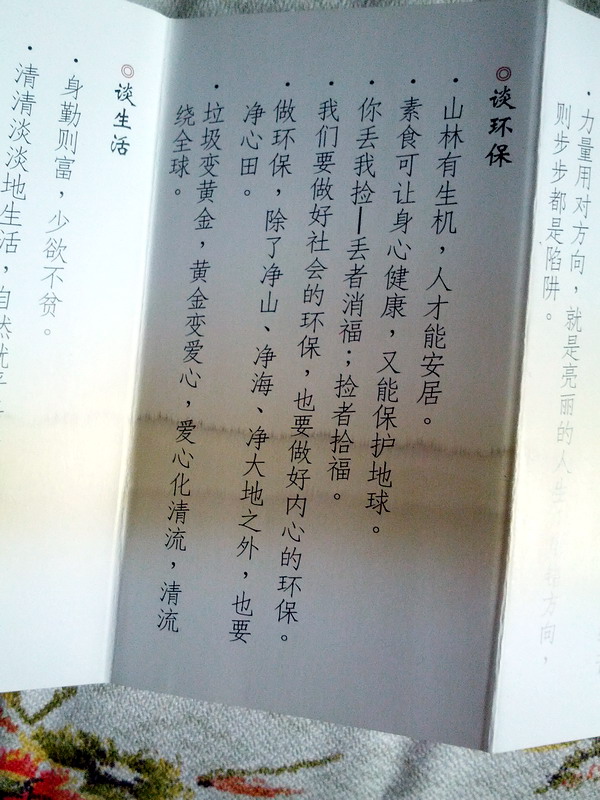 ・力量用对方向，就是亮丽的人生 方向，
则步步都是陷阱。
◎谈环保
・山林有生机，人才能安居。
・素食可让身心健康，又能保护地球。
・你丢我捡—丢者消福；捡者拾福。
・我们要做好社会的环保，也要做好内心的环保。
・做环保，除了净山、净海、净大地之外，也要
净心田。
・垃圾变黄金，黄金变爱心，爱心化清流，清流
绕全球。
◎谈生活
・身勤则富，少欲不贫。
・清清淡淡地生活，自然就